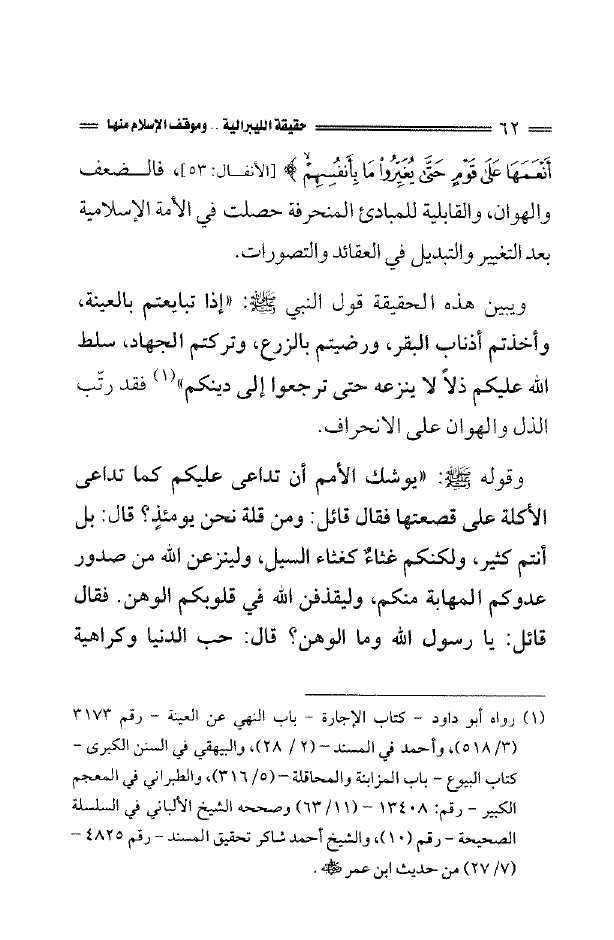 ٦٢ حقيقة الليبرالية .. وموقف الإسلام منها
أَنْعَمَهَا عَلَىٰ قَوْمٍ حَتَّىٰ يُغَيِّرُوا۟ مَا بِأَنفُسِهِمْ ۙ﴾ [الأنفال: ٥٣]، فالضعف
والهوان، والقابلية للمبادئ المنحرفة حصلت في الأمة الإسلامية
بعد التغيير والتبديل في العقائد والتصورات.
ويبين هذه الحقيقة قول النبي ﷺ: «إذا تبايعتم بالعينة،
وأخذتم أذناب البقر، ورضيتم بالزرع، وتركتم الجهاد، سلط
الله عليكم ذلاً لا ينزعه حتى ترجعوا إلى دينكم»(١) فقد رتّب
الذل والهوان على الانحراف.
وقوله ﷺ: «يوشك الأمم أن تداعى عليكم كما تداعى
الأكلة على قصعتها فقال قائل: ومن قلة نحن يومئذٍ؟ قال: بل
أنتم كثير، ولكنكم غثاءٌ كغثاء السيل، ولينزعن الله من صدور
عدوكم المهابة منكم، وليقذفن الله في قلوبكم الوهن. فقال
قائل: يا رسول الله وما الوهن؟ قال: حب الدنيا وكراهية
(١) رواه أبو داود - كتاب الإجارة - باب النهي عن العينة - رقم ٣١٧٣
(٥١٨/٣)، وأحمد في المسند - (٢/ ٢٨)، والبيهقي في السنن الكبرى -
كتاب البيوع - باب المزابنة والمحاقلة - (٥/ ٣١٦)، والطبراني في المعجم
الكبير - رقم: ١٣٤٠٨ - (١١/ ٦٣) وصححه الشيخ الألباني في السلسلة
الصحيحة - رقم (١٠)، والشيخ أحمد شاكر تحقيق المسند - رقم ٤٨٢٥ -
(٧/ ٢٧) من حديث ابن عمر ﵁.